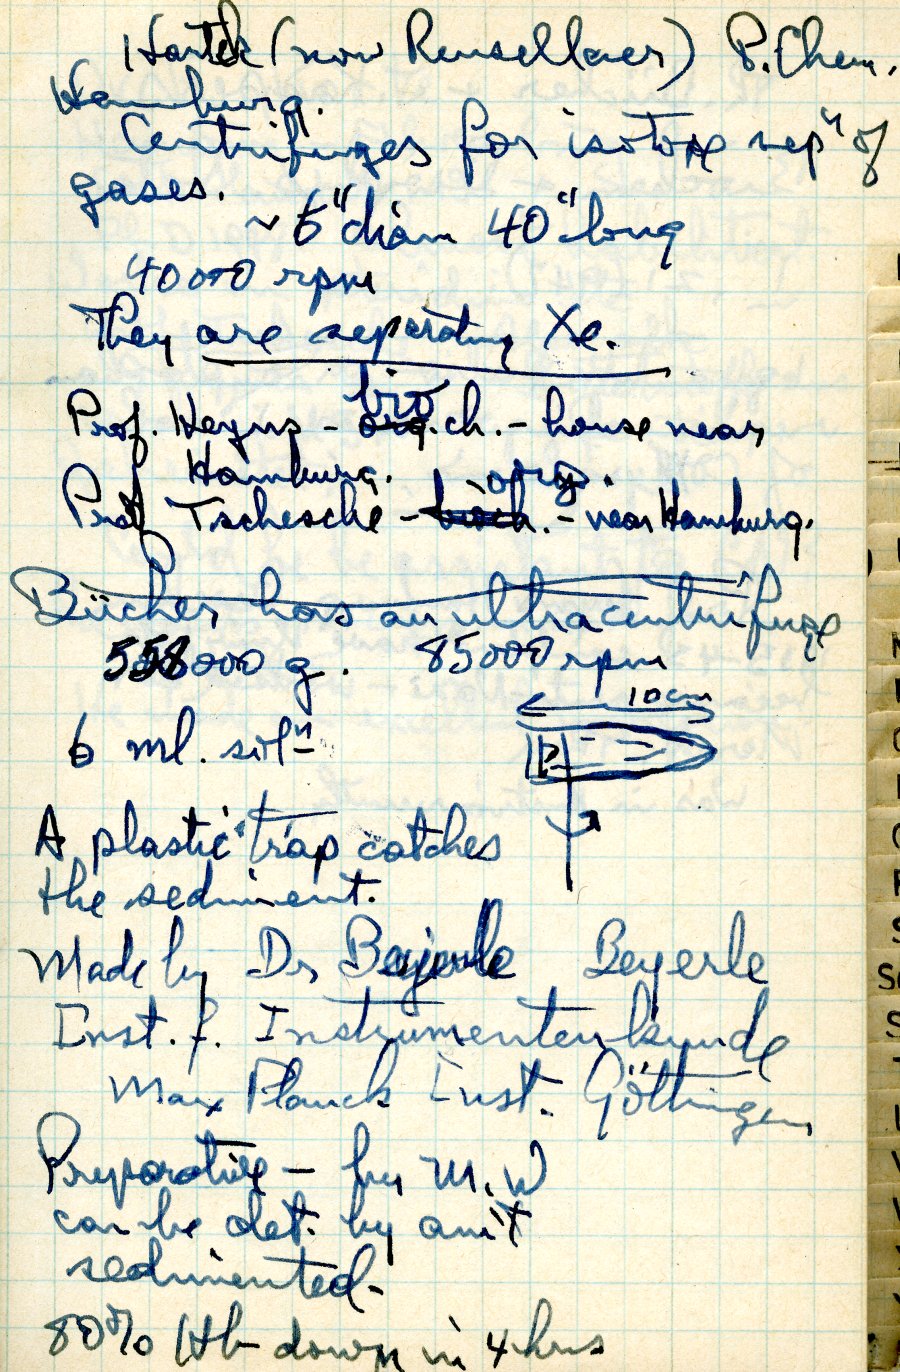 Harteck (now Rensellaer) P. Chem.
Hamburg.
Centrifuges for isotope sepⁿ of
gases.
~ 6" diam 40" long
40000 rpm
They are separating Xe.
bio
Prof. Heyns - org. ch. - house near
Hamburg.
org.
Prof Tschesche - bioch. - near Hamburg.
Bücher has an ultracentrifuge
558000 g. 85000 rpm
10 cm
6 ml. solⁿ
A plastic trap catches
the sediment.
Made by Dr Beyerle Beyerle
Inst. f. Instrumentenkunde
Max Planck Inst. Göttingen
Preparative - but M.W
can be det. by am't
sedimented.
80% Hb down in 4 hrs